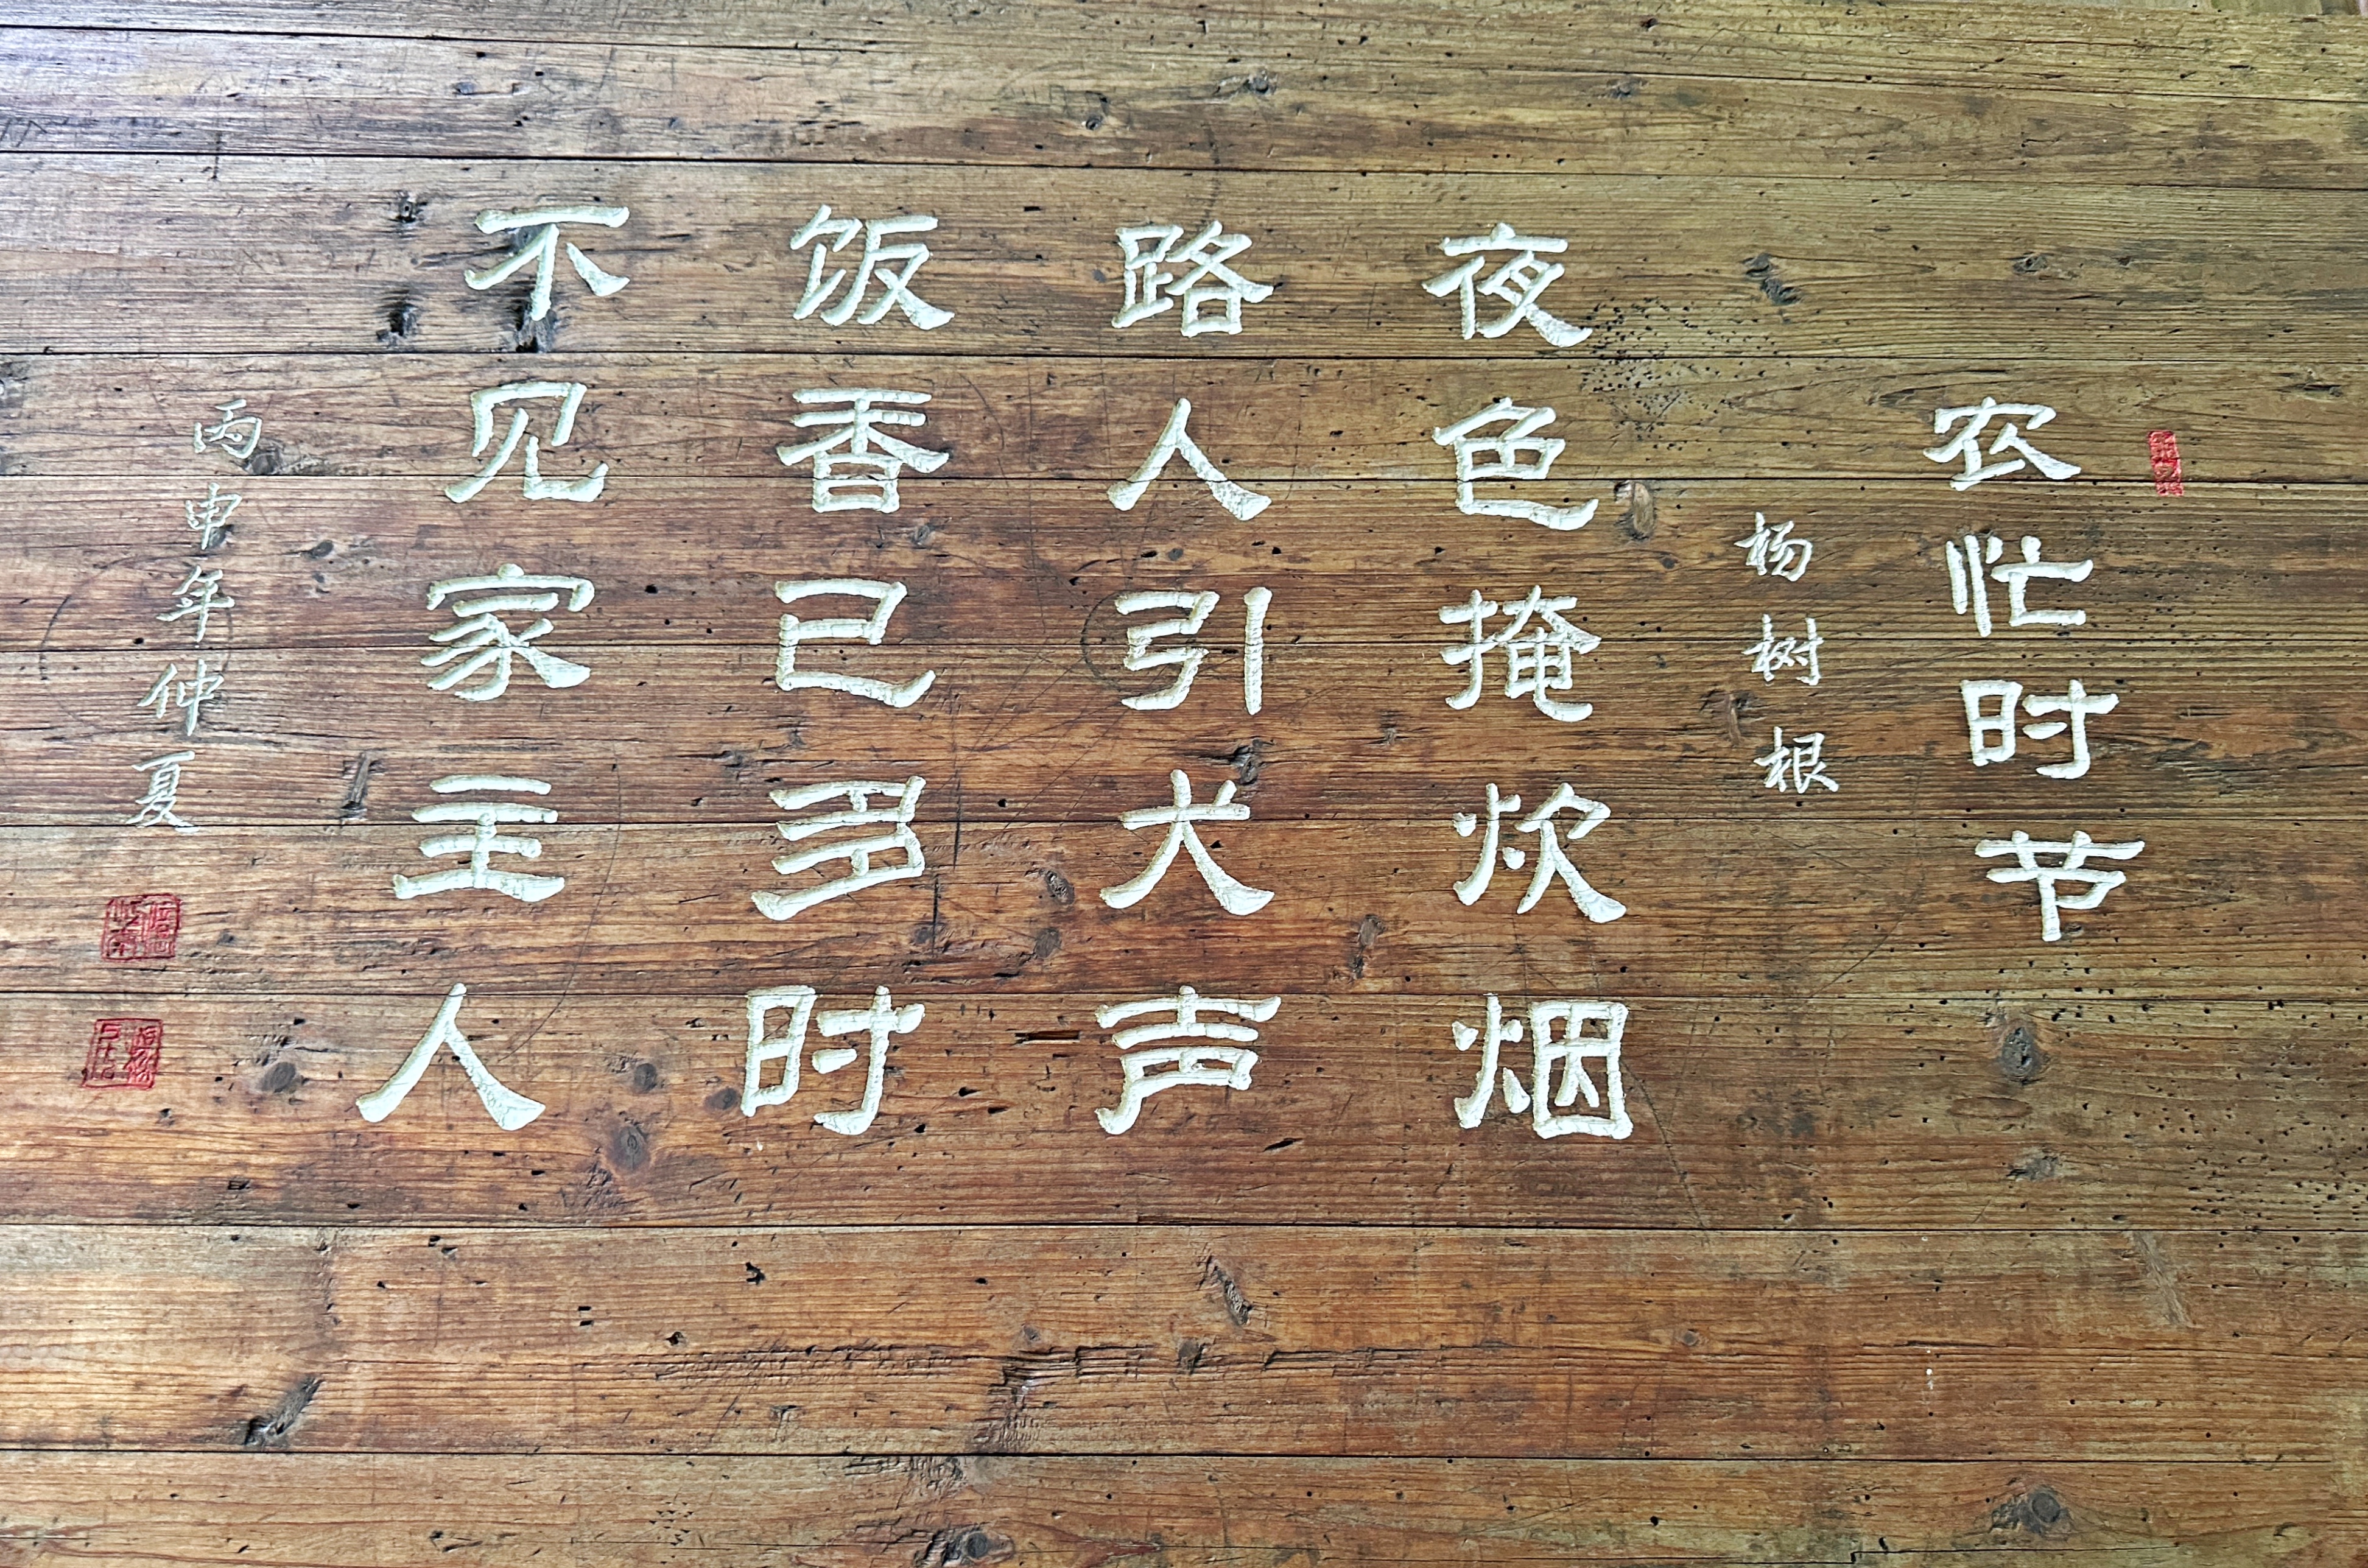 农忙时节
杨树根
夜色掩炊烟
路人引犬声
饭香已多时
不见家主人
丙申年仲夏